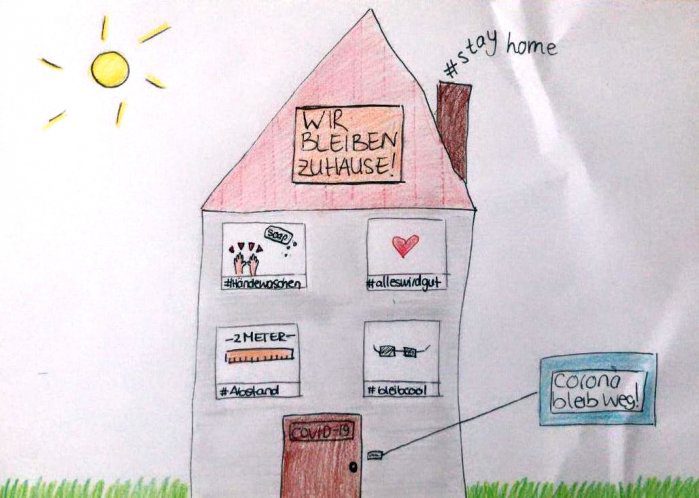 #stay home
WIR
BLEIBEN
ZUHAUSE!
Soap
#Händewaschen
#alleswirdgut
-2 METER-
#Abstand
#bleibcool
Corona
bleib weg!
COVID-19